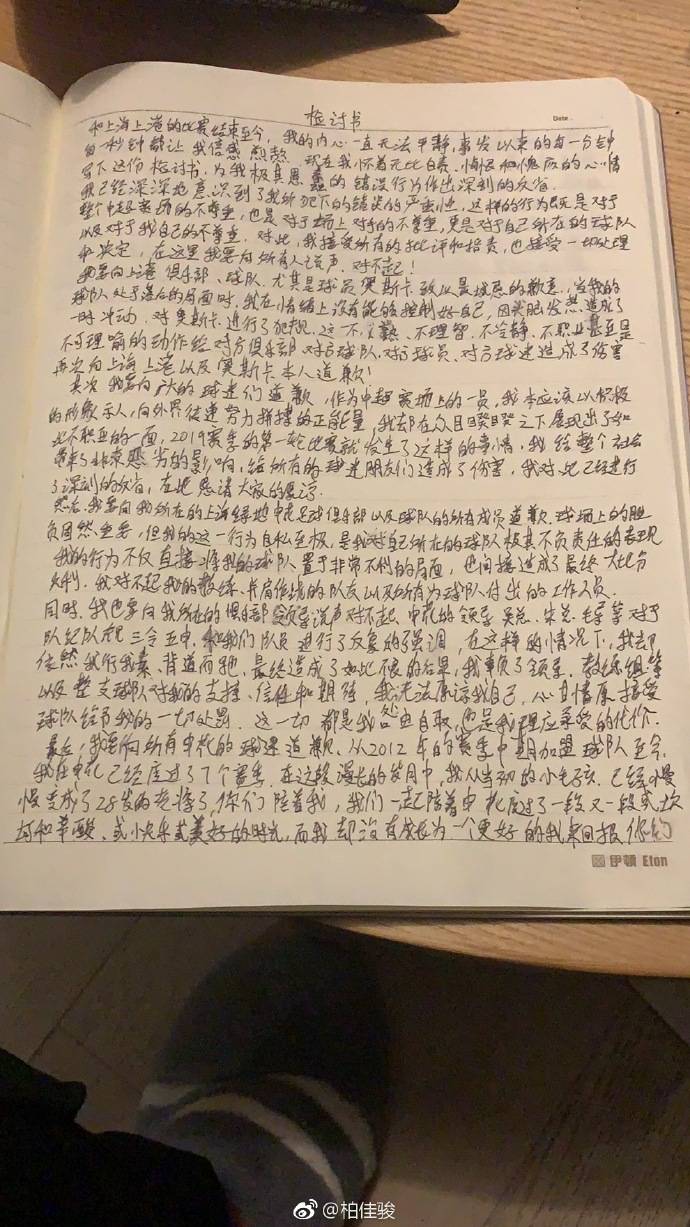 检讨书
Date.
和上海上港的比赛结束至今，我的内心一直无法平静，事发以来的每一分钟
每一秒钟都让我倍感煎熬。现在我怀着无比自责、悔恨和愧疚的心情
写下这份检讨书，为我极其愚蠢的错误行为作出深刻的反省。
我已经深深地意识到了我所犯下的错误的严重性，这样的行为既是对于
整个中超赛场的不尊重，也是对于场上对手的不尊重，更是对于自己所在的球队
以及对于我自己的不尊重，对此，我接受所有的批评和指责，也接受一切处理
和决定，在这里我要向所有人说声，对不起！
我要向上港俱乐部、球队、尤其是球员奥斯卡致以最诚恳的歉意，当我的
球队处于落后的局面时，我在情绪上没有能够控制好自己，因头脑发热造成了
一时冲动，对奥斯卡进行了犯规，这一不 、不理智、不冷静、不职业甚至是
不可理喻的动作给对方俱乐部、对方球队、对方球员、对方球迷造成了伤害
再次向上海上港以及奥斯卡本人道歉！
其次，我要向广大的球迷们道歉，作为中超赛场上的一员，我本应该以积极
的形象示人，向外界传递努力拼搏的正能量，我却在众目睽睽之下展现出了如
此不职业的一面，2019赛季的第一轮比赛就发生了这样的事情，我给整个社会
带来了非常恶劣的影响，给所有的球迷朋友们造成了伤害，我对此已经进行
了深刻的反省，在此恳请大家的原谅。
然后，我要向我所在的上海绿地申花足球俱乐部以及球队的所有成员道歉，球场上的胜
负固然重要，但我的这一行为自私至极，是我对自己所在的球队极其不负责任的表现
我的行为不仅直接将我的球队置于非常不利的局面，也间接造成了最终大比分
失利。我对不起我的教练、并肩作战的队友以及所有为球队付出的工作人员。
同时，我也要向我所在的俱乐部领导说声对不起，申花的领导吴总、朱总、毛导等对于
队纪队规三令五申，和我们队员进行了反复的强调，在这样的情况下，我却
依然我行我素、背道而驰，最终造成了如此不良的后果，我辜负了领导、教练组等
以及整支球队对我的支持、信任和期望，我无法原谅我自己，心甘情愿接受
球队给予我的一切处罚。这一切都是我咎由自取，也是我理应承受的代价。
最后，我要向所有申花的球迷道歉，从2012年的赛季中期加盟球队至今，
我在申花已经度过了7个赛季，在这段漫长的岁月中，我从当初的小毛孩，已经慢
慢变成了28岁的老将了，你们陪着我，我们一起陪着申花度过了一段又一段或坎
坷和辛酸、或快乐或美好的时光，而我却没有成长为一个更好的我来回报你们
伊顿 Eton
@柏佳骏